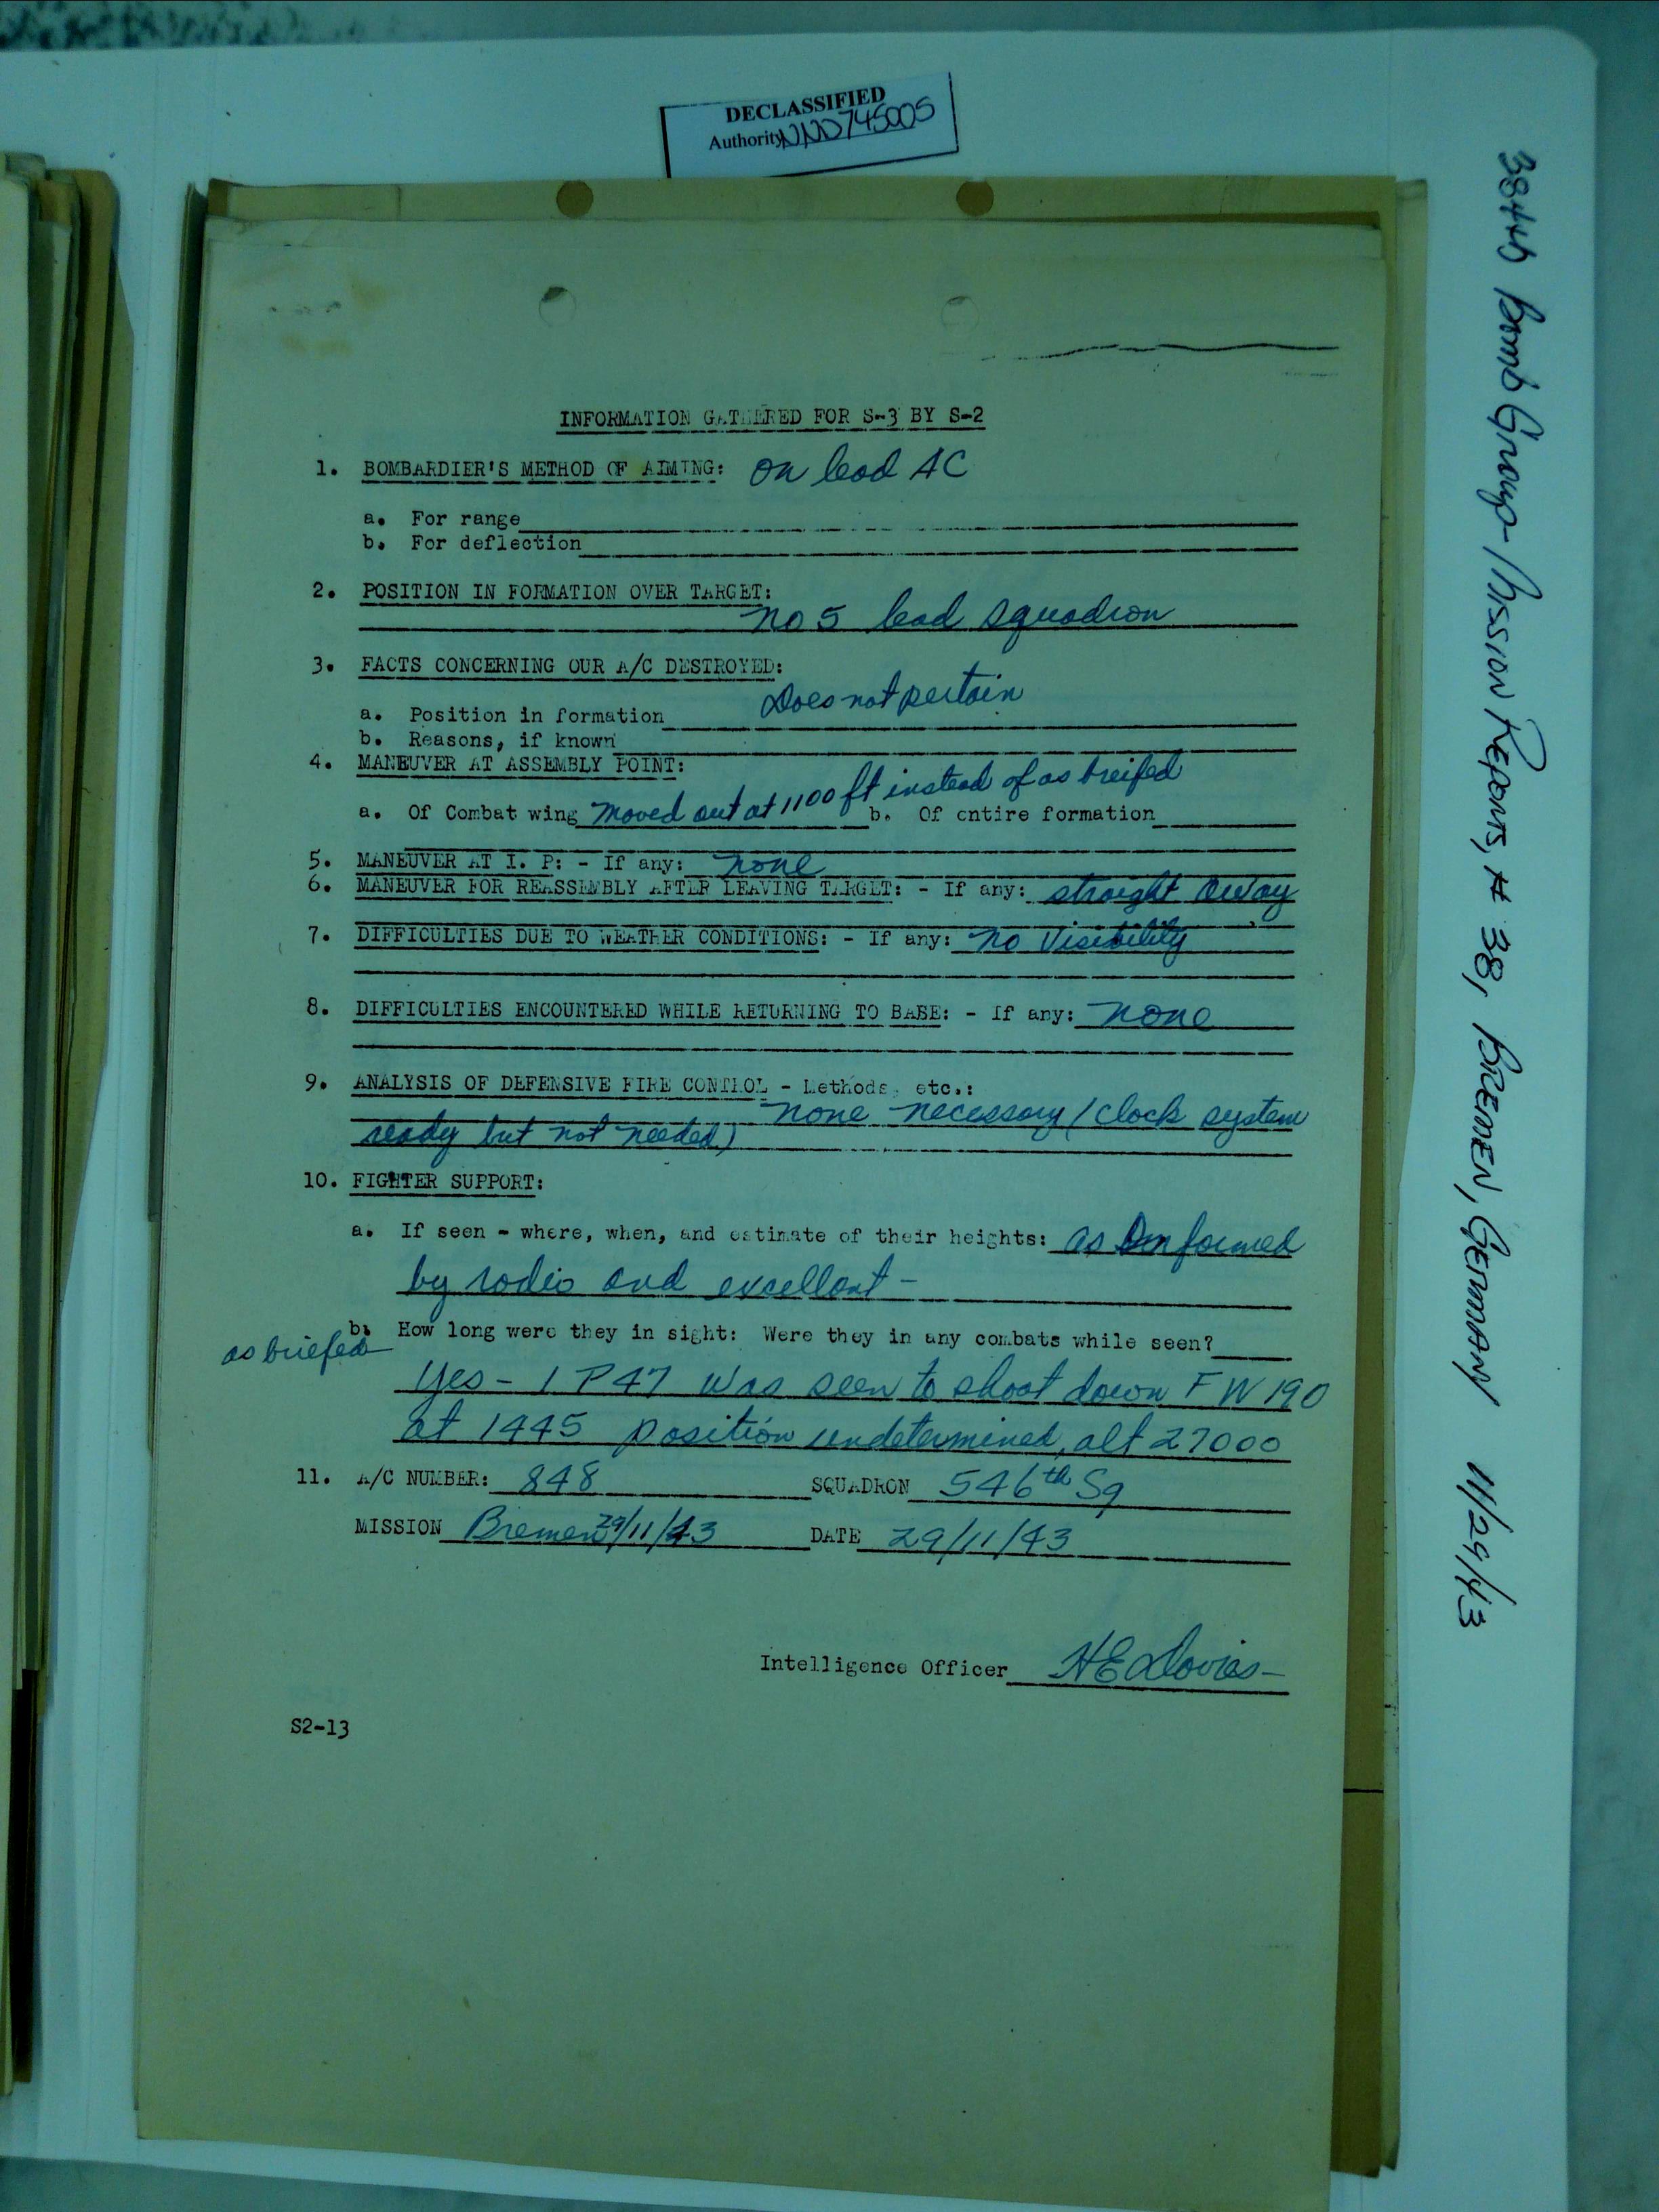 DECLASSIFIED
Authority NND745005
INFORMATION GATHERED FOR S-3 BY S-2
1. BOMBARDIER'S METHOD OF AIMING: on lead AC
a. For range
b. For deflection
2. POSITION IN FORMATION OVER TARGET:
no 5 lead squadron
3. FACTS CONCERNING OUR A/C DESTROYED:
Does not pertain
a. Position in formation
b. Reasons, if known
4. MANEUVER AT ASSEMBLY POINT:
a. Of Combat wing moved out at 1100 ft instead of as breifed b. Of entire formation
5. MANEUVER AT I. P: - If any: none
6. MANEUVER FOR REASSEMBLY AFTER LEAVING TARGET: - If any: straight away
7. DIFFICULTIES DUE TO WEATHER CONDITIONS: - If any: no visibility
8. DIFFICULTIES ENCOUNTERED WHILE RETURNING TO BASE: - If any: none
9. ANALYSIS OF DEFENSIVE FIRE CONTROL - Methods, etc.:
none necessary (clock system
ready but not needed)
10. FIGHTER SUPPORT:
a. If seen - where, when, and estimate of their heights: as informed
by radio and excellant -
b. How long were they in sight: Were they in any combats while seen?
as briefed
Yes - 1 P47 was seen to shoot down FW 190
at 1445 position undetermined, alt 27000
11. A/C NUMBER: 848 SQUADRON 546th Sq
MISSION Bremen 29/11/43 DATE 29/11/43
Intelligence Officer H E Davies
S2-13
384th Bomb Group - Mission Reports, # 38, BREMEN, GERMANY 11/29/43